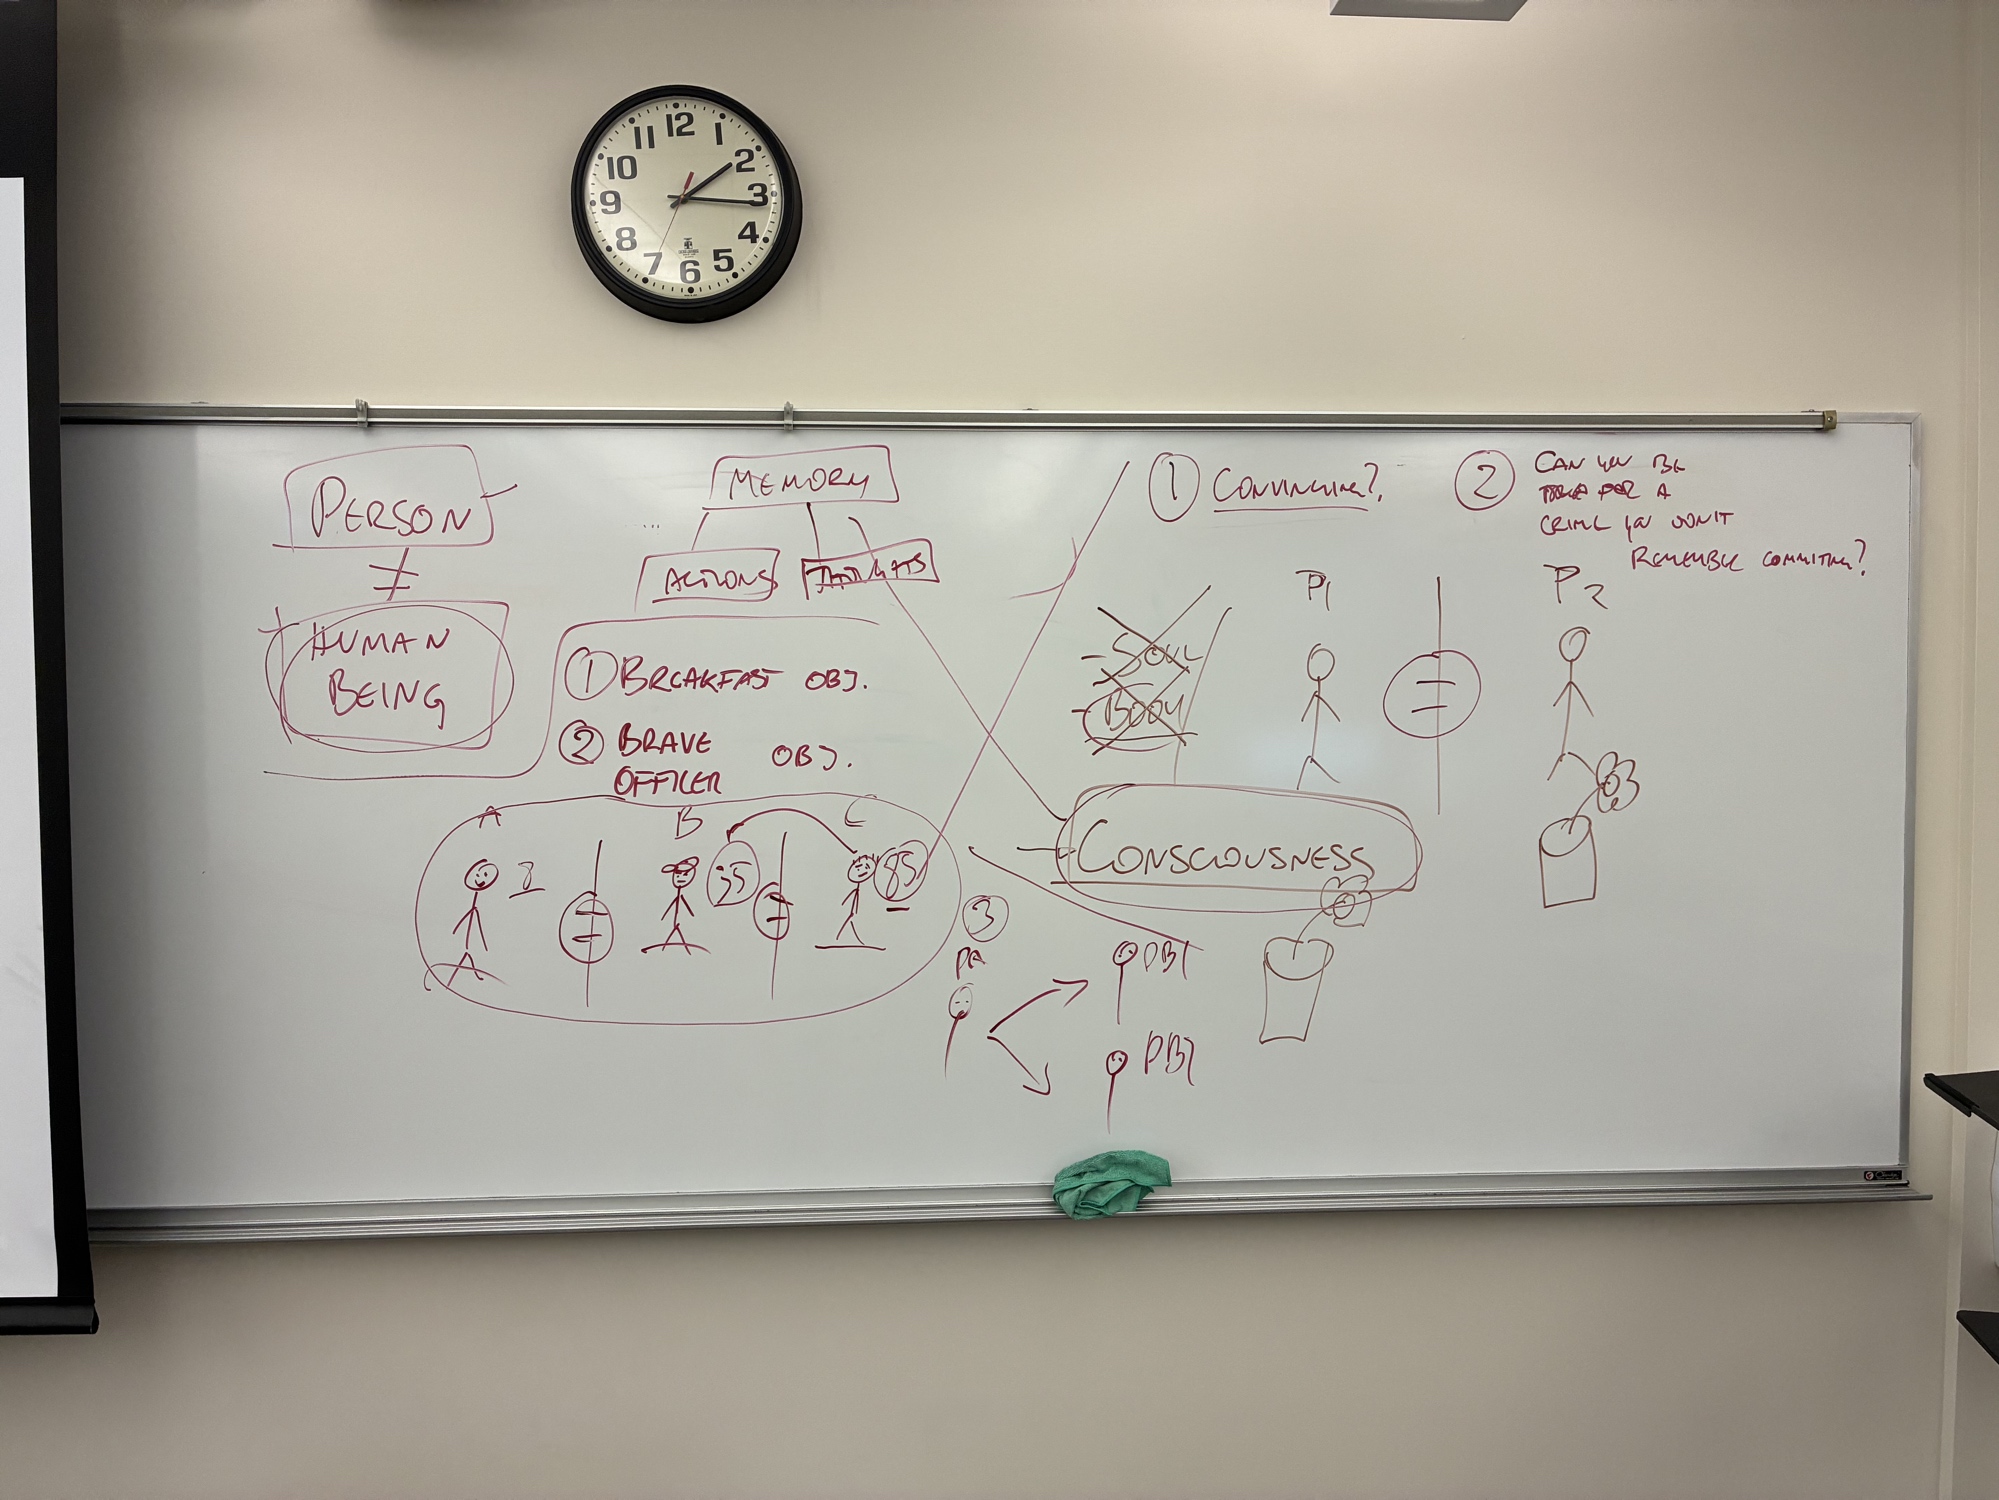 12
1
2
3
4
5
6
7
8
9
10
11
PERSON
≠
HUMAN
BEING
MEMORY
ACTIONS
THOUGHTS
① BREAKFAST OBJ.
② BRAVE OBJ.
OFFICER
A B C
8 = 35 = 85
① CONVINCING?
② CAN YOU BE
FOR A
CRIME YOU DON'T
REMEMBER COMMITING?
- SOUL
- BODY
- CONSCIOUSNESS
P1 = P2
③
PA
PB1
PB2